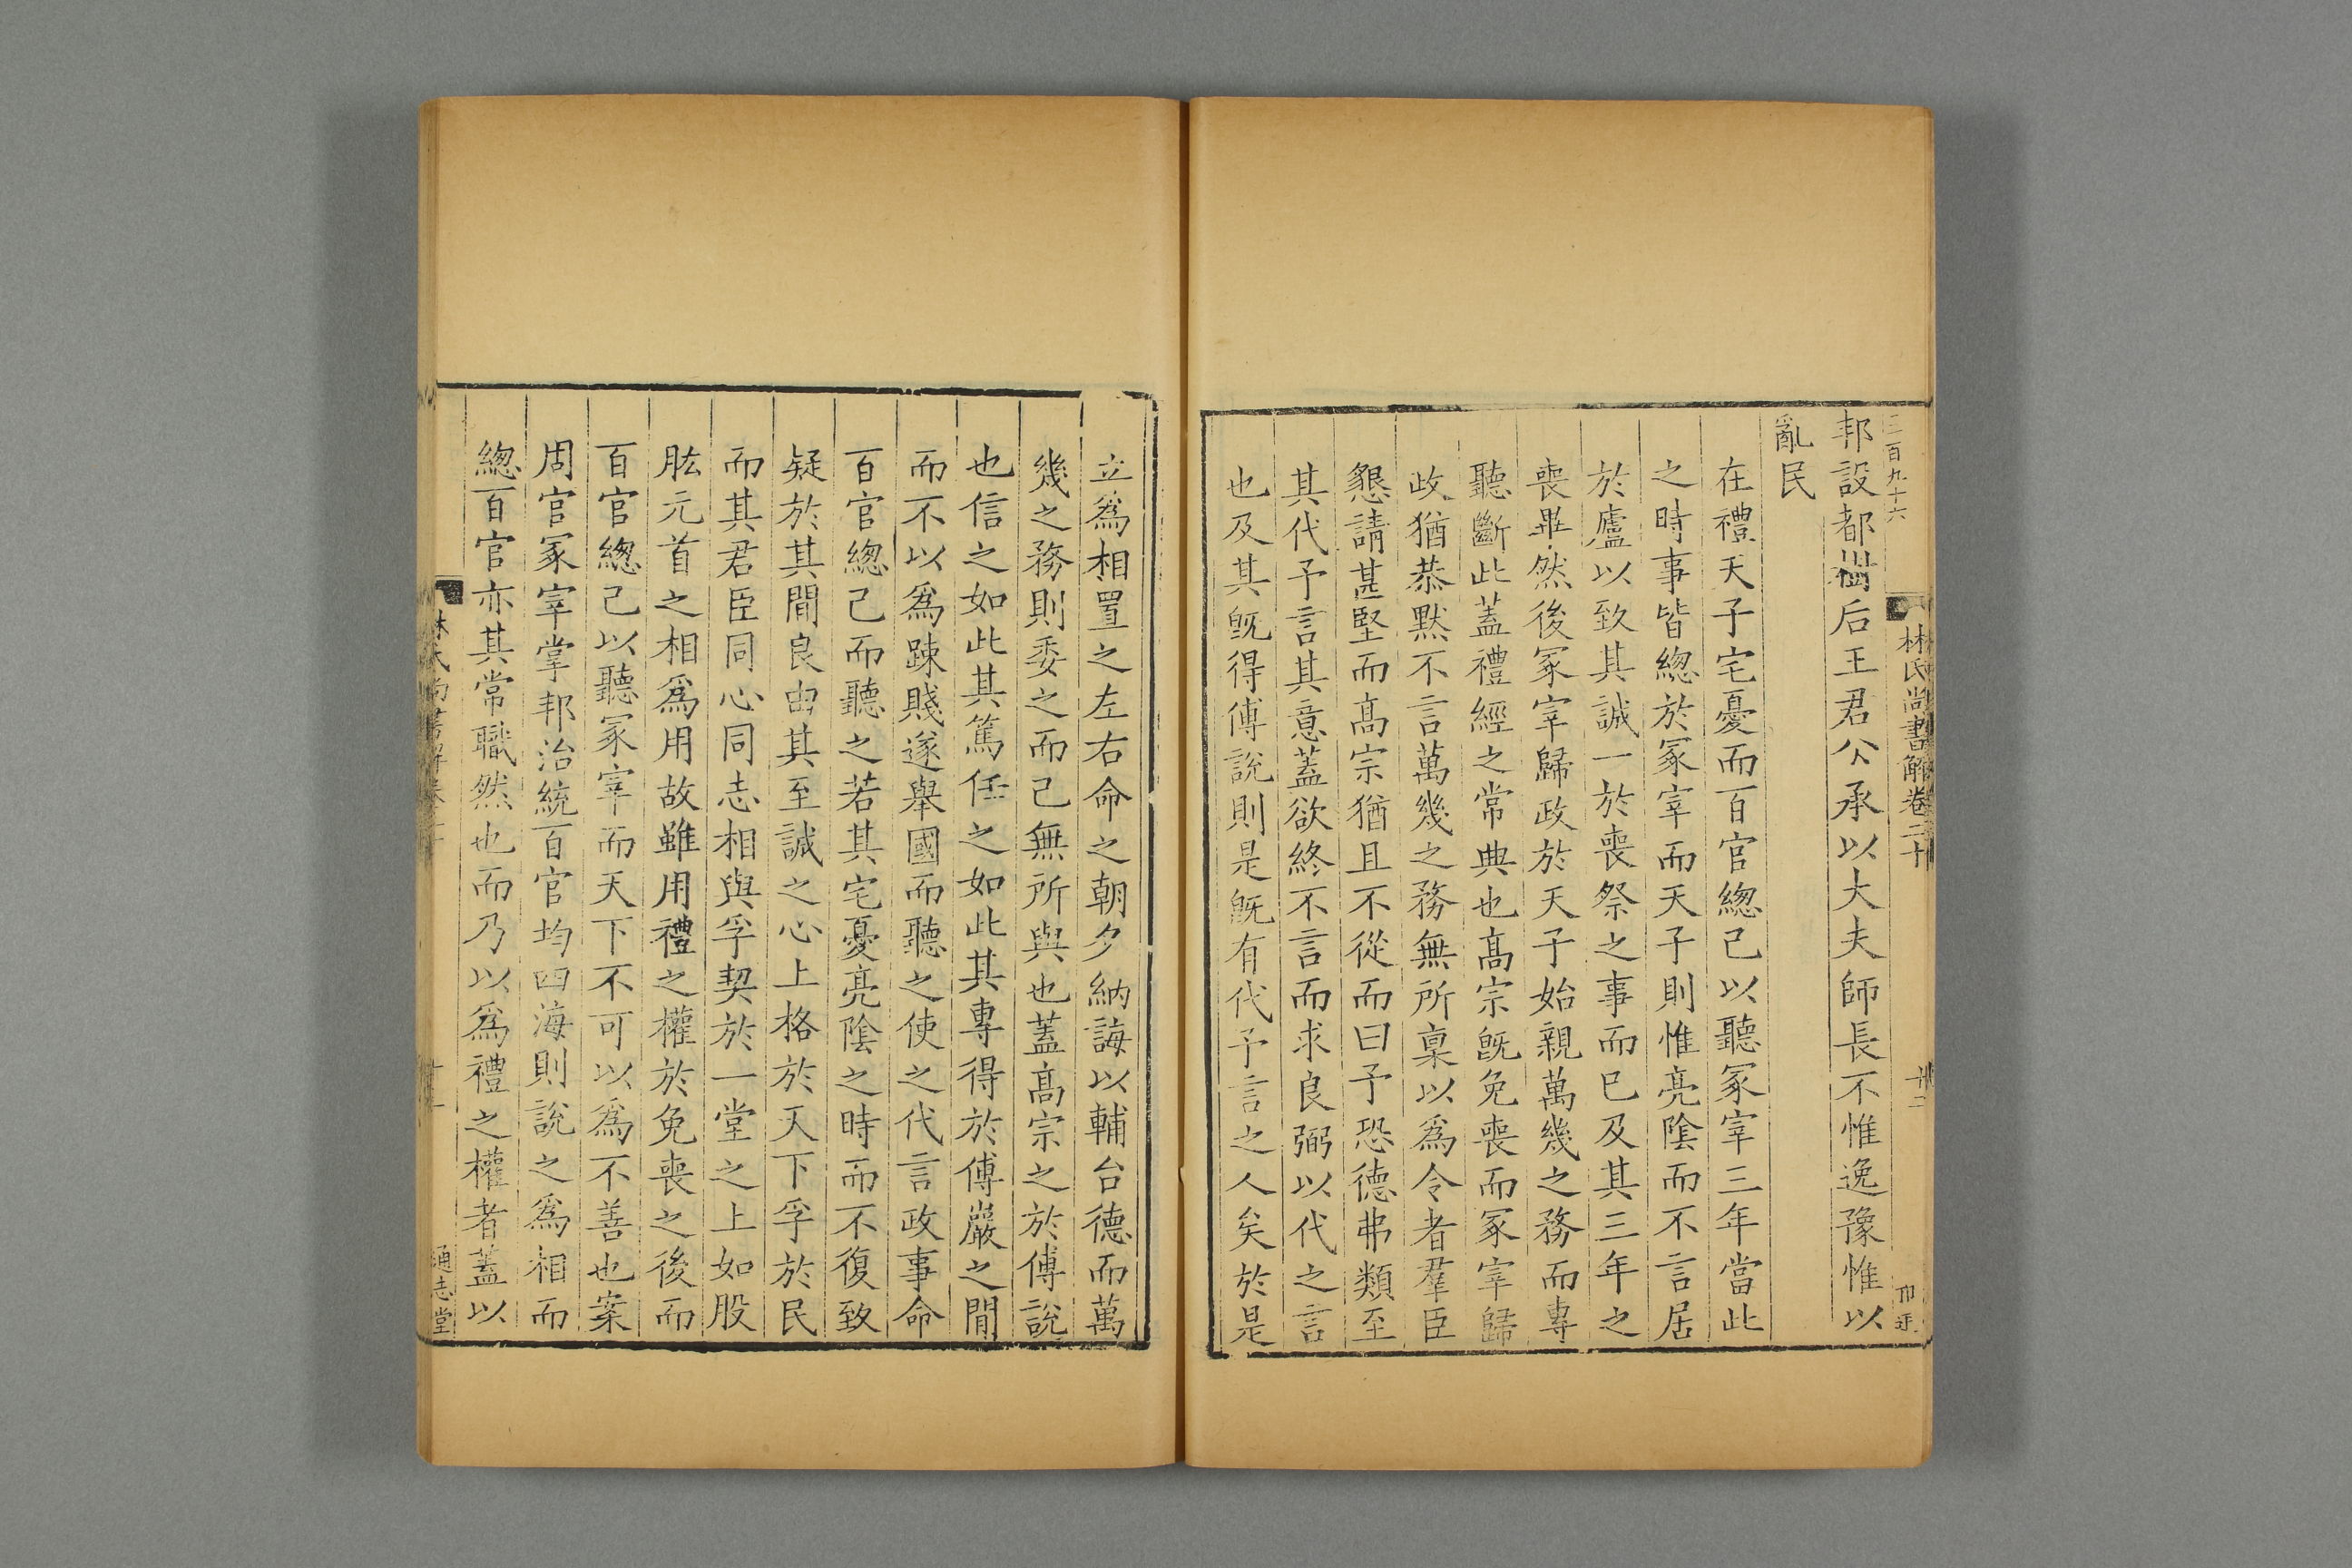 三百九十六
林氏尚書解卷二十
邦設都樹后王君公承以大夫師長不惟逸豫惟以
亂民
在禮天子宅憂而百官緫己以聽冢宰三年當此
之時事皆緫於冢宰而天子則惟亮陰而不言居
於廬以致其誠一於喪祭之事而已及其三年之
喪畢然後冢宰歸政於天子始親萬幾之務而專
聽斷此蓋禮經之常典也髙宗旣免喪而冢宰歸
政猶恭默不言萬幾之務無所稟以為令者羣臣
懇請甚堅而髙宗猶且不從而曰予恐德弗類至
其代予言其意蓋欲終不言而求良弼以代之言
也及其旣得傅說則是旣有代予言之人矣於是
立為相置之左右命之朝夕納誨以輔台德而萬
幾之務則委之而已無所與也蓋髙宗之於傅說
也信之如此其篤任之如此其專得於傅巖之間
而不以為踈賤遂舉國而聽之使之代言政事命
百官緫己而聽之若其宅憂亮陰之時而不復致
疑於其間良由其至誠之心上格於天下孚於民
而其君臣同心同志相與孚契於一堂之上如股
肱元首之相為用故雖用禮之權於免喪之後而
百官緫己以聽冢宰而天下不可以為不善也案
周官冢宰掌邦治統百官均四海則說之為相而
緫百官亦其常職然也而乃以為禮之權者蓋以
通志堂